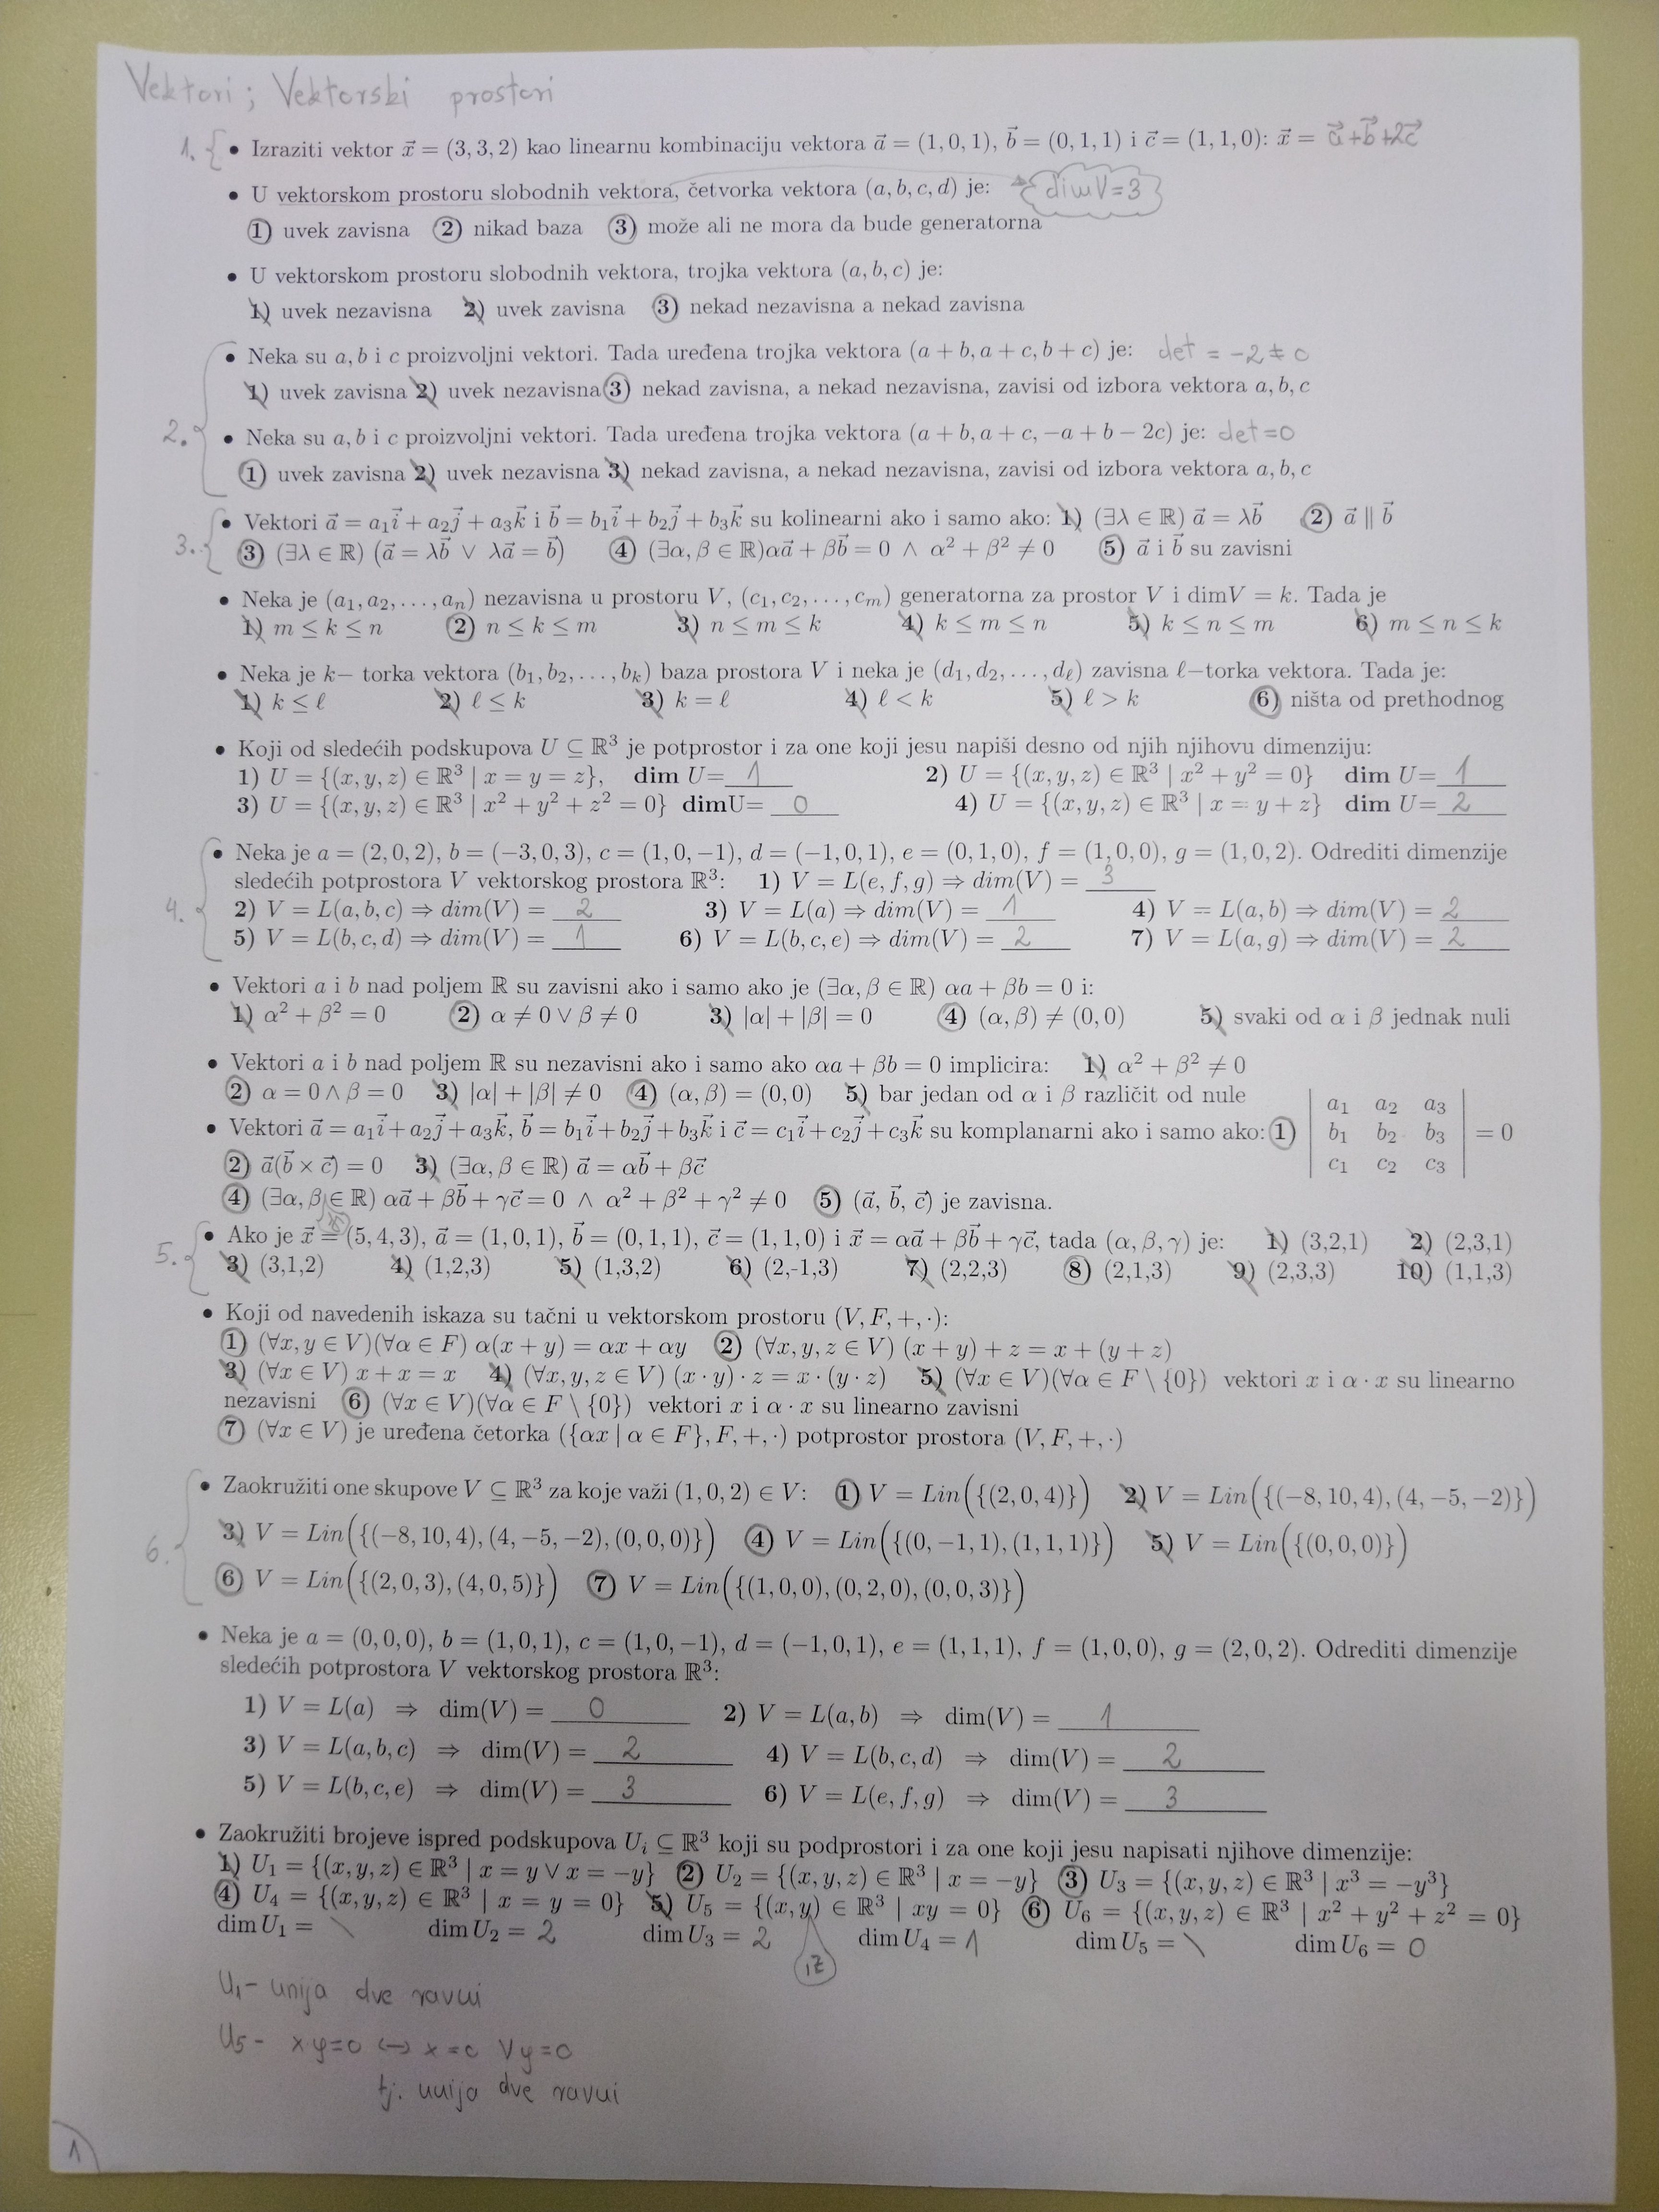 Vektori ; Vektorski prostori
1. { • Izraziti vektor x⃗ = (3, 3, 2) kao linearnu kombinaciju vektora a⃗ = (1, 0, 1), b⃗ = (0, 1, 1) i c⃗ = (1, 1, 0): x⃗ = a⃗+b⃗+2c⃗
• U vektorskom prostoru slobodnih vektora, četvorka vektora (a, b, c, d) je: dimV=3
1) uvek zavisna 2) nikad baza 3) može ali ne mora da bude generatorna
• U vektorskom prostoru slobodnih vektora, trojka vektora (a, b, c) je:
1) uvek nezavisna 2) uvek zavisna 3) nekad nezavisna a nekad zavisna
• Neka su a, b i c proizvoljni vektori. Tada uređena trojka vektora (a + b, a + c, b + c) je: det = -2 ≠ 0
1) uvek zavisna 2) uvek nezavisna 3) nekad zavisna, a nekad nezavisna, zavisi od izbora vektora a, b, c
2. { • Neka su a, b i c proizvoljni vektori. Tada uređena trojka vektora (a + b, a + c, −a + b − 2c) je: det=0
1) uvek zavisna 2) uvek nezavisna 3) nekad zavisna, a nekad nezavisna, zavisi od izbora vektora a, b, c
• Vektori a⃗ = a₁i⃗ + a₂j⃗ + a₃k⃗ i b⃗ = b₁i⃗ + b₂j⃗ + b₃k⃗ su kolinearni ako i samo ako: 1) (∃λ ∈ ℝ) a⃗ = λb⃗ 2) a⃗ ∥ b⃗
3. { 3) (∃λ ∈ ℝ) (a⃗ = λb⃗ ∨ λa⃗ = b⃗) 4) (∃α, β ∈ ℝ)αa⃗ + βb⃗ = 0 ∧ α² + β² ≠ 0 5) a⃗ i b⃗ su zavisni
• Neka je (a₁, a₂, . . . , aₙ) nezavisna u prostoru V, (c₁, c₂, . . . , cₘ) generatorna za prostor V i dimV = k. Tada je
1) m ≤ k ≤ n 2) n ≤ k ≤ m 3) n ≤ m ≤ k 4) k ≤ m ≤ n 5) k ≤ n ≤ m 6) m ≤ n ≤ k
• Neka je k− torka vektora (b₁, b₂, . . . , bₖ) baza prostora V i neka je (d₁, d₂, . . . , dℓ) zavisna ℓ−torka vektora. Tada je:
1) k ≤ ℓ 2) ℓ ≤ k 3) k = ℓ 4) ℓ < k 5) ℓ > k 6) ništa od prethodnog
• Koji od sledećih podskupova U ⊆ ℝ³ je potprostor i za one koji jesu napiši desno od njih njihovu dimenziju:
1) U = {(x, y, z) ∈ ℝ³ | x = y = z}, dim U= 1 2) U = {(x, y, z) ∈ ℝ³ | x² + y² = 0} dim U= 1
3) U = {(x, y, z) ∈ ℝ³ | x² + y² + z² = 0} dimU= 0 4) U = {(x, y, z) ∈ ℝ³ | x = y + z} dim U= 2
• Neka je a = (2, 0, 2), b = (−3, 0, 3), c = (1, 0, −1), d = (−1, 0, 1), e = (0, 1, 0), f = (1, 0, 0), g = (1, 0, 2). Odrediti dimenzije
sledećih potprostora V vektorskog prostora ℝ³: 1) V = L(e, f, g) ⇒ dim(V) = 3
4. { 2) V = L(a, b, c) ⇒ dim(V) = 2 3) V = L(a) ⇒ dim(V) = 1 4) V = L(a, b) ⇒ dim(V) = 2
5) V = L(b, c, d) ⇒ dim(V) = 1 6) V = L(b, c, e) ⇒ dim(V) = 2 7) V = L(a, g) ⇒ dim(V) = 2
• Vektori a i b nad poljem ℝ su zavisni ako i samo ako je (∃α, β ∈ ℝ) αa + βb = 0 i:
1) α² + β² = 0 2) α ≠ 0 ∨ β ≠ 0 3) |α| + |β| = 0 4) (α, β) ≠ (0, 0) 5) svaki od α i β jednak nuli
• Vektori a i b nad poljem ℝ su nezavisni ako i samo ako αa + βb = 0 implicira: 1) α² + β² ≠ 0
2) α = 0 ∧ β = 0 3) |α| + |β| ≠ 0 4) (α, β) = (0, 0) 5) bar jedan od α i β različit od nule
• Vektori a⃗ = a₁i⃗+a₂j⃗+a₃k⃗, b⃗ = b₁i⃗+b₂j⃗+b₃k⃗ i c⃗ = c₁i⃗+c₂j⃗+c₃k⃗ su komplanarni ako i samo ako: 1) | a₁ a₂ a₃ |
| b₁ b₂ b₃ | = 0
| c₁ c₂ c₃ |
2) a⃗(b⃗ × c⃗) = 0 3) (∃α, β ∈ ℝ) a⃗ = αb⃗ + βc⃗
4) (∃α, β ∈ ℝ) αa⃗ + βb⃗ + γc⃗ = 0 ∧ α² + β² + γ² ≠ 0 5) (a⃗, b⃗, c⃗) je zavisna.
,γ
5. { • Ako je x⃗ = (5, 4, 3), a⃗ = (1, 0, 1), b⃗ = (0, 1, 1), c⃗ = (1, 1, 0) i x⃗ = αa⃗ + βb⃗ + γc⃗, tada (α, β, γ) je: 1) (3,2,1) 2) (2,3,1)
3) (3,1,2) 4) (1,2,3) 5) (1,3,2) 6) (2,-1,3) 7) (2,2,3) 8) (2,1,3) 9) (2,3,3) 10) (1,1,3)
• Koji od navedenih iskaza su tačni u vektorskom prostoru (V, F, +, ·):
1) (∀x, y ∈ V)(∀α ∈ F) α(x + y) = αx + αy 2) (∀x, y, z ∈ V) (x + y) + z = x + (y + z)
3) (∀x ∈ V) x + x = x 4) (∀x, y, z ∈ V) (x · y) · z = x · (y · z) 5) (∀x ∈ V)(∀α ∈ F \ {0}) vektori x i α · x su linearno
nezavisni 6) (∀x ∈ V)(∀α ∈ F \ {0}) vektori x i α · x su linearno zavisni
7) (∀x ∈ V) je uređena četorka ({αx | α ∈ F}, F, +, ·) potprostor prostora (V, F, +, ·)
• Zaokružiti one skupove V ⊆ ℝ³ za koje važi (1, 0, 2) ∈ V: 1) V = Lin({(2, 0, 4)}) 2) V = Lin({(−8, 10, 4), (4, −5, −2)})
6. { 3) V = Lin({(−8, 10, 4), (4, −5, −2), (0, 0, 0)}) 4) V = Lin({(0, −1, 1), (1, 1, 1)}) 5) V = Lin({(0, 0, 0)})
6) V = Lin({(2, 0, 3), (4, 0, 5)}) 7) V = Lin({(1, 0, 0), (0, 2, 0), (0, 0, 3)})
• Neka je a = (0, 0, 0), b = (1, 0, 1), c = (1, 0, −1), d = (−1, 0, 1), e = (1, 1, 1), f = (1, 0, 0), g = (2, 0, 2). Odrediti dimenzije
sledećih potprostora V vektorskog prostora ℝ³:
1) V = L(a) ⇒ dim(V) = 0 2) V = L(a, b) ⇒ dim(V) = 1
3) V = L(a, b, c) ⇒ dim(V) = 2 4) V = L(b, c, d) ⇒ dim(V) = 2
5) V = L(b, c, e) ⇒ dim(V) = 3 6) V = L(e, f, g) ⇒ dim(V) = 3
• Zaokružiti brojeve ispred podskupova Uᵢ ⊆ ℝ³ koji su podprostori i za one koji jesu napisati njihove dimenzije:
1) U₁ = {(x, y, z) ∈ ℝ³ | x = y ∨ x = −y} 2) U₂ = {(x, y, z) ∈ ℝ³ | x = −y} 3) U₃ = {(x, y, z) ∈ ℝ³ | x³ = −y³}
4) U₄ = {(x, y, z) ∈ ℝ³ | x = y = 0} 5) U₅ = {(x, y) ∈ ℝ³ | xy = 0} 6) U₆ = {(x, y, z) ∈ ℝ³ | x² + y² + z² = 0}
dim U₁ = \ dim U₂ = 2 dim U₃ = 2 dim U₄ = 1 dim U₅ = \ dim U₆ = 0
,z
U₁- unija dve ravni
U₅ - x·y=0 ↔ x=0 ∨ y=0
tj. unija dve ravni
1